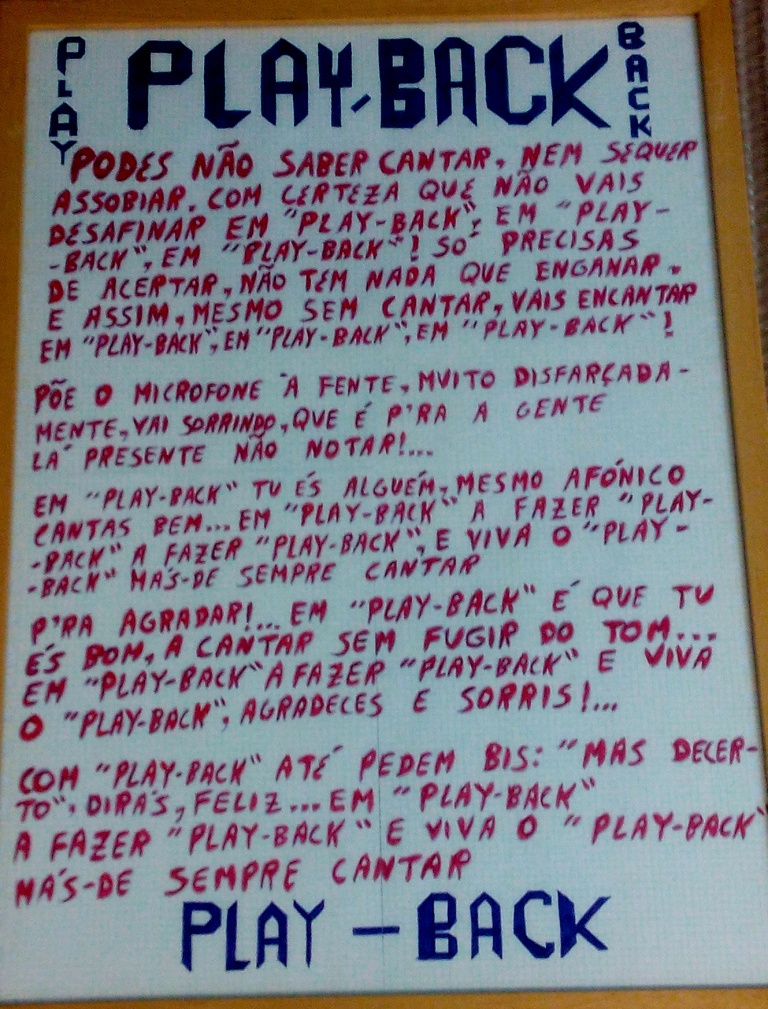 PLAY
PLAY-BACK
BACK
PODES NÃO SABER CANTAR, NEM SEQUER
ASSOBIAR. COM CERTEZA QUE NÃO VAIS
DESAFINAR EM "PLAY-BACK", EM "PLAY-
-BACK", EM "PLAY-BACK"! SO´ PRECISAS
DE ACERTAR, NÃO TEM NADA QUE ENGANAR.
E ASSIM, MESMO SEM CANTAR, VAIS ENCANTAR
EM "PLAY-BACK", EM "PLAY-BACK", EM "PLAY-BACK"!
PÕE O MICROFONE `A FENTE, MUITO DISFARÇADA-
MENTE, VAI SORRINDO, QUE É P'RA A GENTE
LA´ PRESENTE NÃO NOTAR!...
EM "PLAY-BACK" TU ÉS ALGUÉM, MESMO AFÓNICO
CANTAS BEM... EM "PLAY-BACK" A FAZER "PLAY-
-BACK" A FAZER "PLAY-BACK", E VIVA O "PLAY-
-BACK" HA´S-DE SEMPRE CANTAR
P'RA AGRADAR!... EM "PLAY-BACK" E´ QUE TU
ÉS BOM, A CANTAR SEM FUGIR DO TOM...
EM "PLAY-BACK" A FAZER "PLAY-BACK" E VIVA
O "PLAY-BACK", AGRADECES E SORRIS!...
COM "PLAY-BACK" ATE´ PEDEM BIS: "MAS DECER-
TO", DIRA´S, FELIZ... EM "PLAY-BACK"
A FAZER "PLAY-BACK" E VIVA O "PLAY-BACK"
HA´S-DE SEMPRE CANTAR
PLAY - BACK